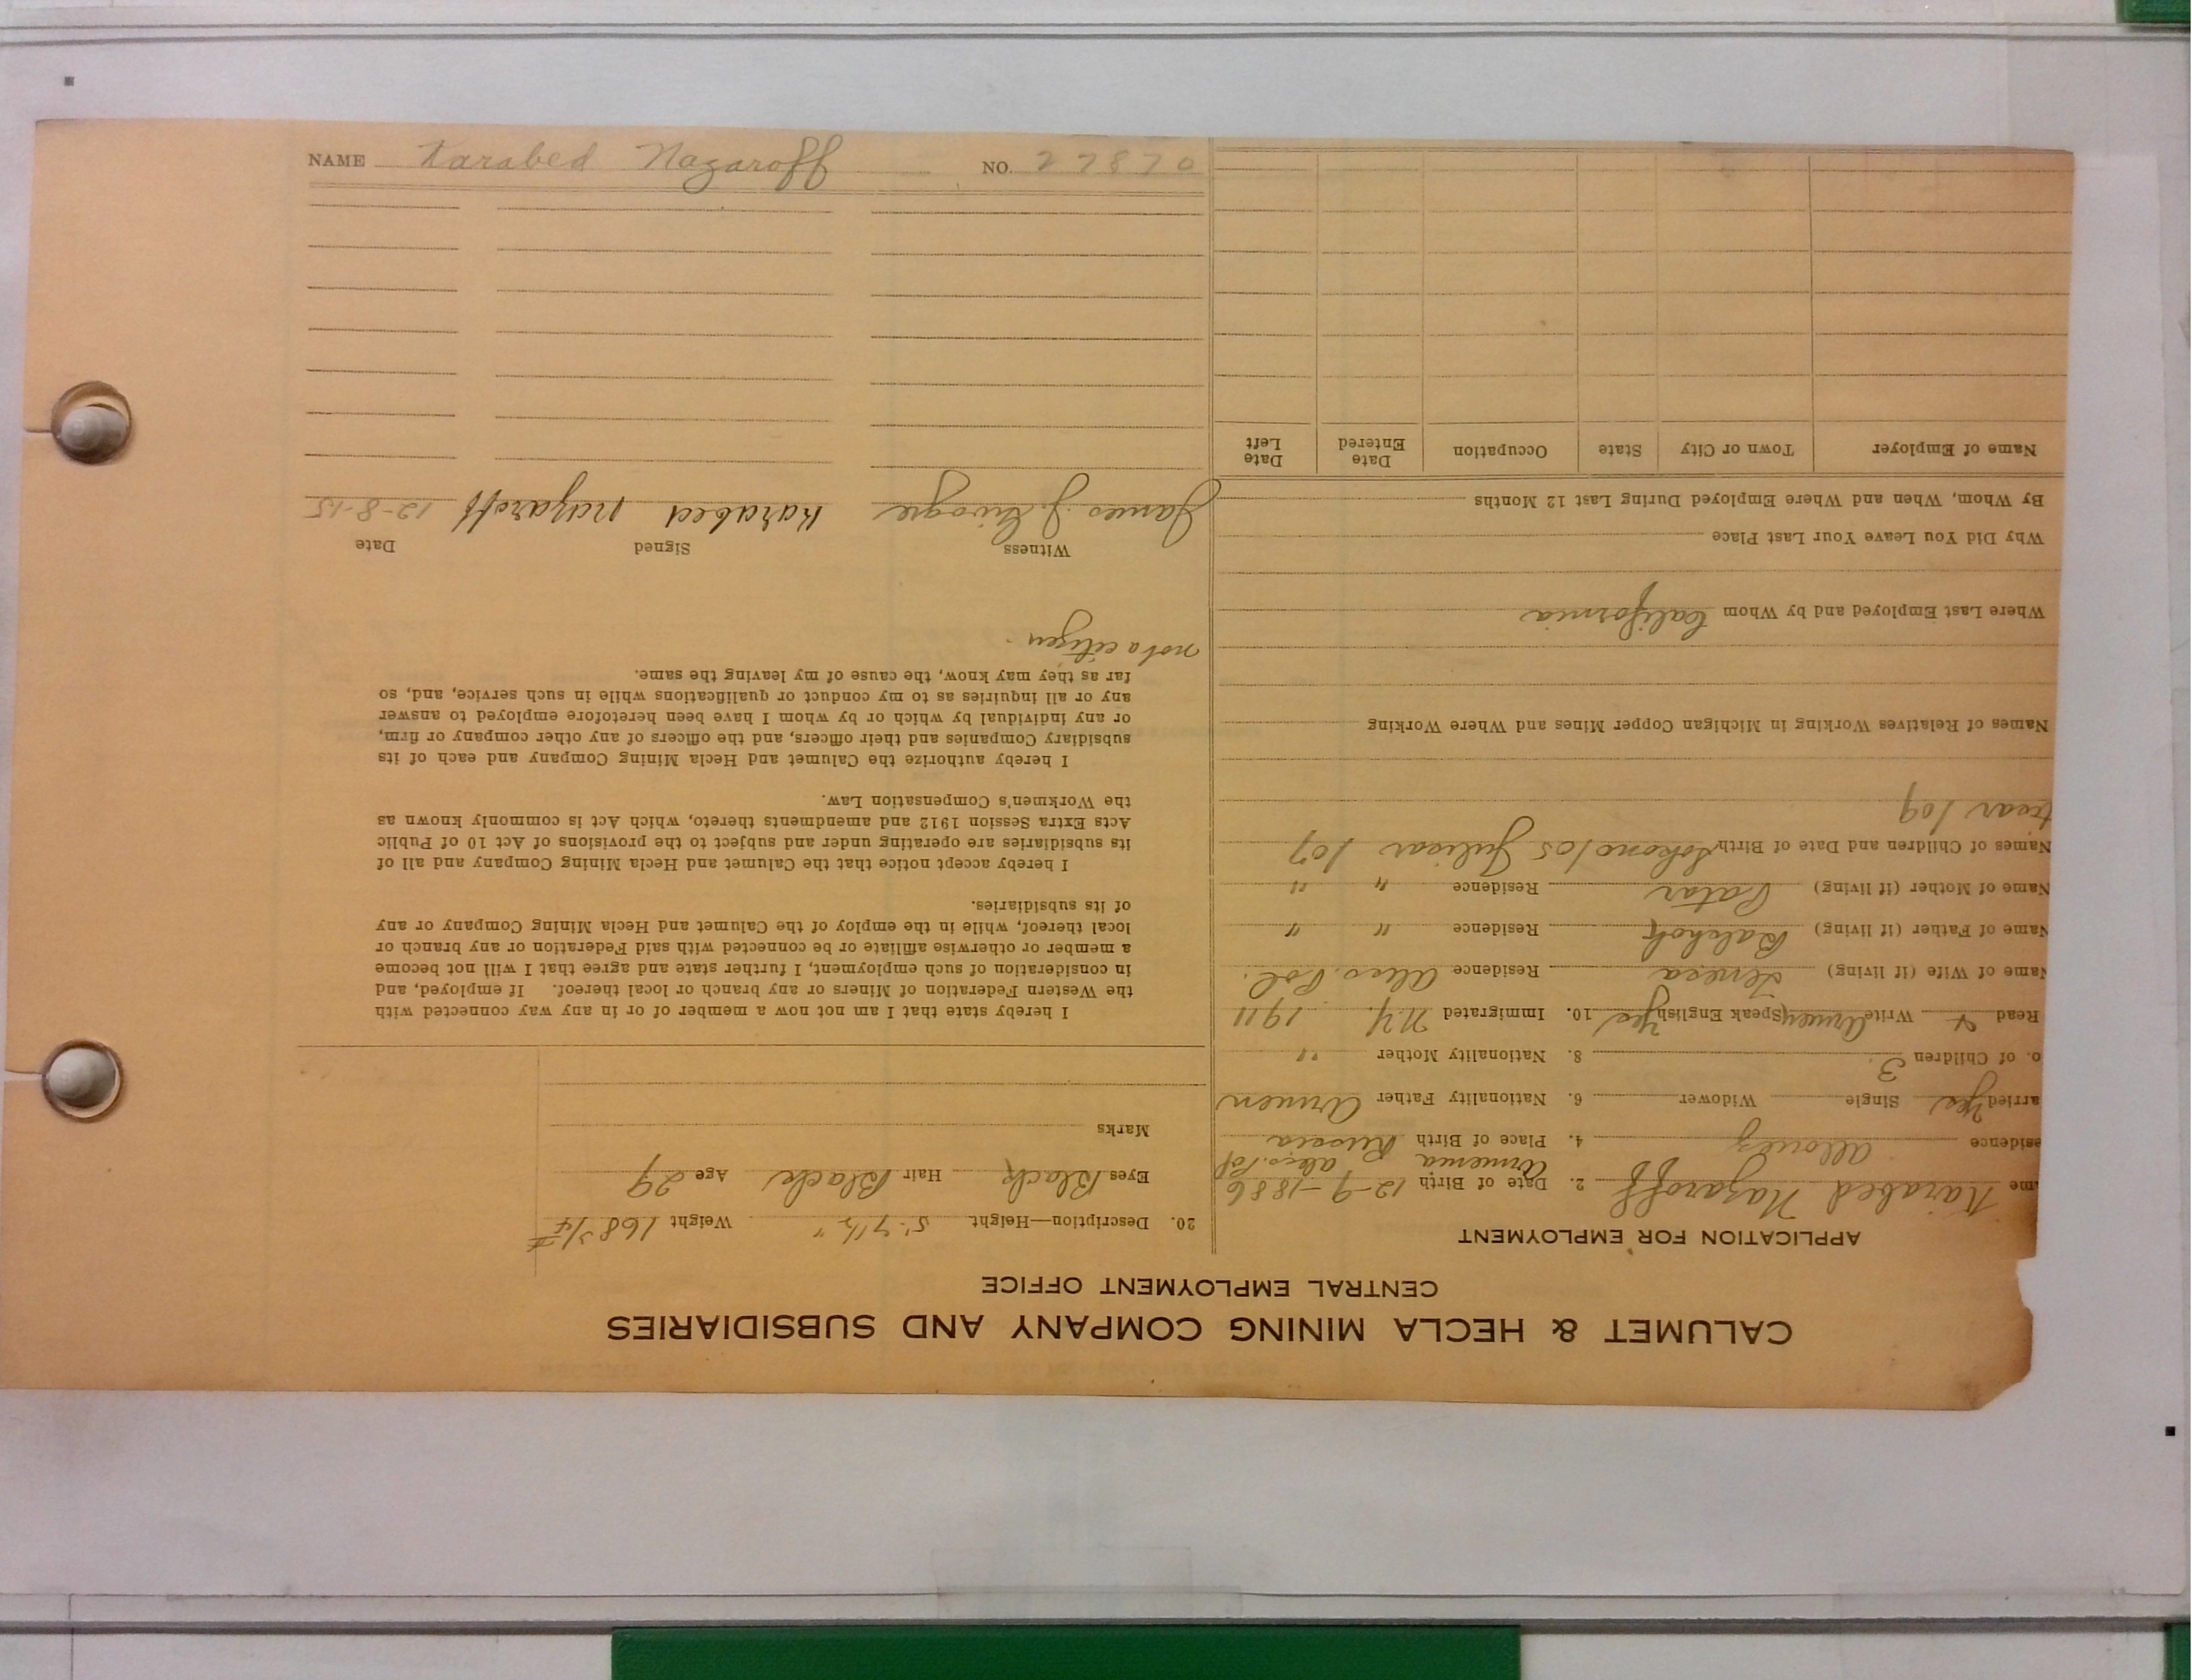 CALUMET & HECLA MINING COMPANY AND SUBSIDIARIES
CENTRAL EMPLOYMENT OFFICE
APPLICATION FOR EMPLOYMENT
me Karabed Nazaroff 2. Date of Birth 12-9-1886
Armenia
esidence Allouez 4. Place of Birth Russia
arried Yes Single Widower 6. Nationality Father Armen
o. of Children 3 8. Nationality Mother "
Read Write Speak English Yes 10. Immigrated N.Y. 1911
Name of Wife (if living) Residence
Name of Father (if living) Residence " "
Name of Mother (if living) Residence " "
Names of Children and Date of Birth
Names of Relatives Working in Michigan Copper Mines and Where Working
Where Last Employed and by Whom California
Why Did You Leave Your Last Place
By Whom, When and Where Employed During Last 12 Months
Name of Employer Town or City State Occupation Date Entered Date Left
20. Description—Height 5' 7 1/2" Weight 168 3/4 #
Eyes Black Hair Black Age 29
Marks
I hereby state that I am not now a member of or in any way connected with
the Western Federation of Miners or any branch or local thereof. If employed, and
in consideration of such employment, I further state and agree that I will not become
a member or otherwise affiliate or be connected with said Federation or any branch or
local thereof, while in the employ of the Calumet and Hecla Mining Company or any
of its subsidiaries.
I hereby accept notice that the Calumet and Hecla Mining Company and all of
its subsidiaries are operating under and subject to the provisions of Act 10 of Public
Acts Extra Session 1912 and amendments thereto, which Act is commonly known as
the Workmen's Compensation Law.
I hereby authorize the Calumet and Hecla Mining Company and each of its
subsidiary Companies and their officers, and the officers of any other company or firm,
or any individual by which or by whom I have been heretofore employed to answer
any or all inquiries as to my conduct or qualifications while in such service, and, so
far as they may know, the cause of my leaving the same.
not a citizen.
Witness Signed Date
James J. Karabed Nazaroff 12-8-15
NAME Karabed Nazaroff NO. 27870